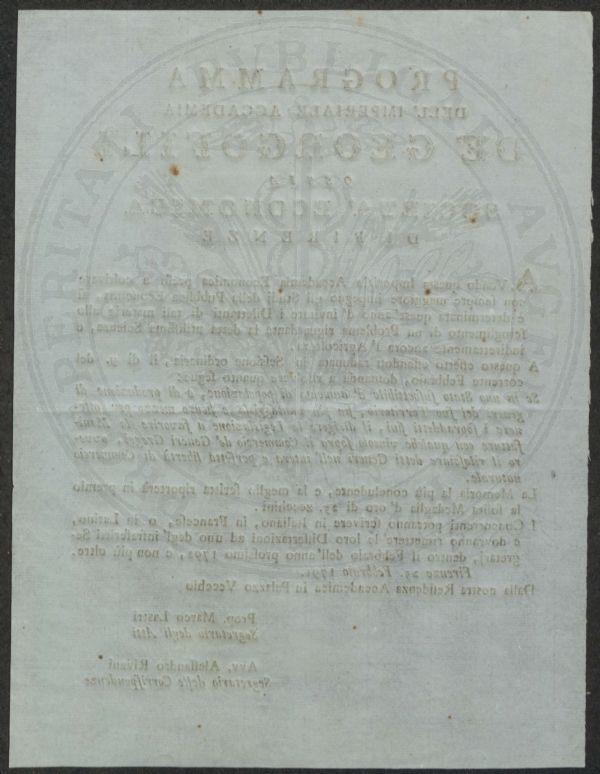 PROGRAMMA
DELL' IMPERIALE ACCADEMIA
DE GEORGOFILI
OSSIA
SOCIETA' ECONOMICA
DI FIRENZE
Avendo questa Imperiale Accademia Economica preso a coltivare
con sempre maggiore impegno gli Studi della Pubblica Economia, si
è determinata quest' anno d' invitare i Dilettanti di tali materie allo
scioglimento di un Problema riguardante la detta utilissima Scienza, e
indirettamente ancora l' Agricoltura.
A questo effetto essendosi radunata in Sessione ordinaria, il dì 9. del
corrente Febbraio, domandò a risolvere quanto segue:
Se in uno Stato suscettibile d' aumento di popolazione, e di produzione di
generi del suo Territorio, sia più vantaggioso e sicuro mezzo per
il dirigere la Legislazione a favorire le Mani-
fatture con qualche vincolo sopra il Commercio de' Generi Greggi, ovve-
ro il rilasciare detti Generi nell' intera e perfetta libertà di Commercio
naturale.
La Memoria la più concludente, e la meglio scritta riporterà in premio
la solita Medaglia d' oro di 25. zecchini.
I Concorrenti potranno scrivere in Italiano, in Francese, o in Latino,
e dovranno rimettere le loro Dissertazioni ad uno degl' infrascritti Se-
gretarj, dentro il Febbraio dell' anno prossimo 1792, e non più oltre.
Firenze 25. Febbraio 1791.
Dalla nostra Residenza Accademica in Palazzo Vecchio
Prop. Marco Lastri
Segretario degli Atti
Avv. Alessandro Rivani
Segretario delle Corrispondenze